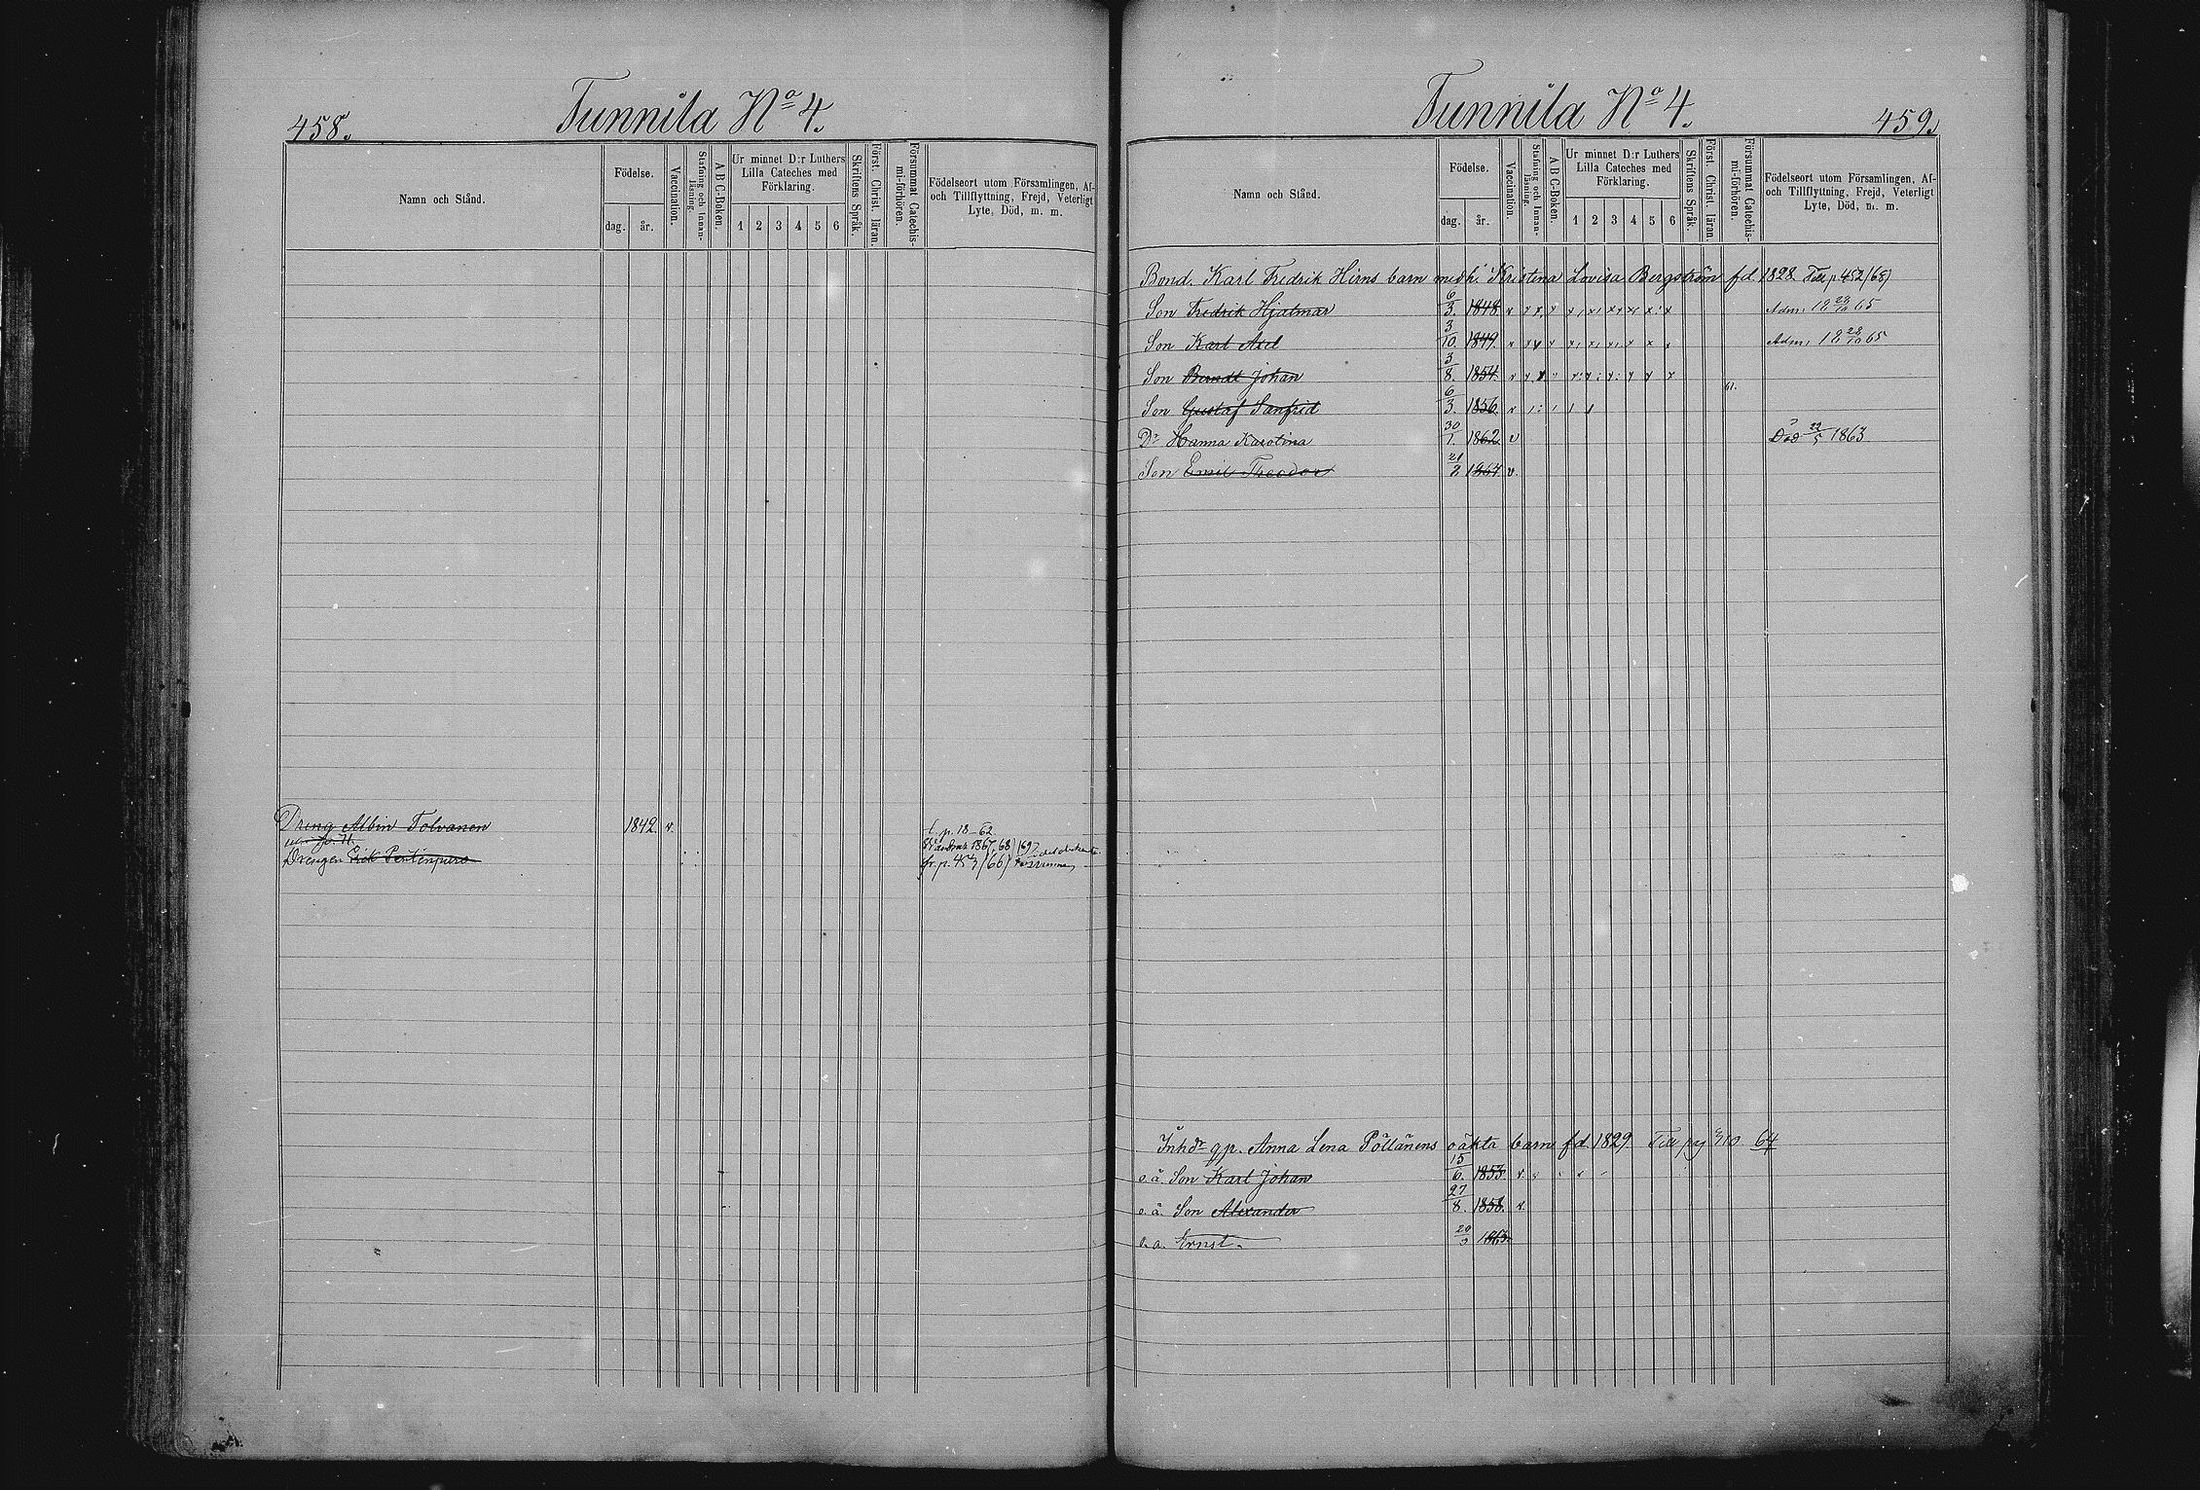 458.
Tunnila No 4.
Namn och Stånd.
Födelse.
dag.
år.
Vaccination.
Stafning och Innan-
läsning.
A B C-Boken.
Ur minnet D:r Luthers
Lilla Cateches med
Förklaring.
1 2 3 4 5 6
Skriftens Språk.
Först. Christ. läran.
Försummat Catechis-
mi-förhören.
Födelseort utom Församlingen, Af-
och Tillflyttning, Frejd, Veterligt
Lyte, Död, m. m.
Dreng Albin Tolvanen 1842. v. t. p. 18-62
Drengen Erik Pentinpuro fr. p. 457 (66)
Tunnila No 4.
459.
Namn och Stånd.
Födelse.
dag.
år.
Vaccination.
Stafning och Innan-
läsning.
A B C-Boken.
Ur minnet D:r Luthers
Lilla Cateches med
Förklaring.
1 2 3 4 5 6
Skriftens Språk.
Först. Christ. läran.
Försummat Catechis-
mi-förhören.
Födelseort utom Församlingen, Af-
och Tillflyttning, Frejd, Veterligt
Lyte, Död, m. m.
Bond. Karl Fredrik Hirns barn med h. Kristina Lovisa Bergström fd. 1828. Till p. 452 (65)
Son Fredrik Hjalmar 6/3. 1848. v Adm. 18 29/10 65
Son Karl Axel 3/10. 1849. v Adm. 18 28/10 65
Son Berndt Johan 3/8. 1854. v 61.
Son Gustaf Sanfrid 6/3. 1856. v
Dr Hanna Karolina 30/1. 1862 v Död 22/5 1863
Son Emil Theodor 21/2 1864 v.
Inhdr qp. Anna Lena Pöllänens oäkta barn fd. 1829. Till pag 710 64
o.ä. Son Karl Johan 15/6. 1853. v.
o.ä. Son Alexander 27/8. 1858. v.
o.a. Ernst. 1863.